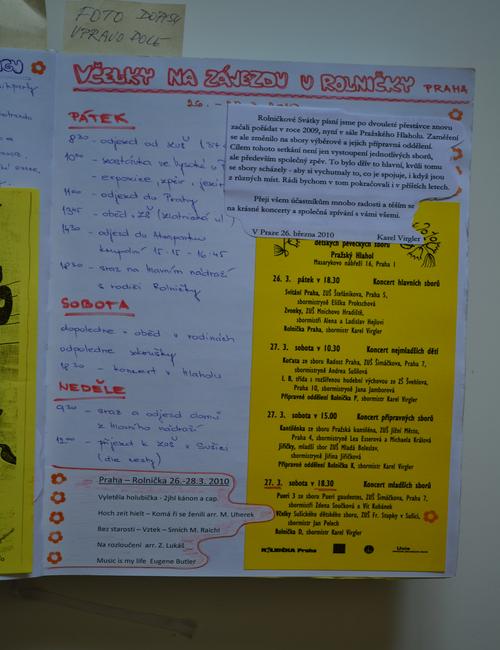 FOTO DOPISU
VPRAVO DOLE
VČELKY NA ZÁJEZDU U ROLNIČKY PRAHA
PÁTEK
8³⁰ - odjezd od ZUŠ
- zastávka ve Vysoké u
- expozice, zpěv,
11⁰⁰ odjezd do Prahy
13⁴⁵ oběd v ZŠ
14³⁰ odjezd do Aquaparku
koupání 15-15 - 16:45
18³⁰ - sraz na hlavním nádraží
s rodiči Rolničky
SOBOTA
dopoledne + oběd v rodinách
odpoledne zkoušky
18³⁰ - koncert v Hlaholu
NEDĚLE
9³⁰ - sraz a odjezd domů
z hlavního nádraží
- příjezd k ZUŠ v Sušici
(dle cesty)
Praha – Rolnička 26.-28.3. 2010
Vyletěla holubička - 2jhl kánon a cap.
Hoch zeit hielt – Komá ři se ženili arr. M. Uherek
Bez starosti – Vztek – Smích M. Raichl
Na rozloučení arr. Z. Lukáš
Music is my life Eugene Butler
Rolničkové Svátky písní jsme po dvouleté přestávce znovu
začali pořádat v roce 2009, nyní v sále Pražského Hlaholu. Zaměření
se ale změnilo na sbory výběrové a jejich přípravná oddělení.
Cílem tohoto setkání není jen vystoupení jednotlivých sborů,
ale především společný zpěv. To bylo dřív to hlavní, kvůli tomu
se sbory scházely - aby si vychutnaly to, co je spojuje, i když jsou
z různých míst. Rádi bychom v tom pokračovali i v příštích letech.
Přeji všem účastníkům mnoho radosti a těším se
na krásné koncerty a společné zpívání s vámi všemi.
V Praze 26. března 2010 Karel Virgler
dětských pěveckých sborů
Pražský Hlahol
Masarykovo nábřeží 16, Praha 1
26. 3. pátek v 18.30 Koncert hlavních sborů
Svítání Praha, ZUŠ Štefánikova, Praha 5,
sbormistryně Eliška Prokschová
Zvonky, ZUŠ Mnichovo Hradiště,
sbormistři Alena a Ladislav Hejlovi
Rolnička Praha, sbormistr Karel Virgler
27. 3. sobota v 10.30 Koncert nejmladších dětí
Koťata ze sboru Radost Praha, ZUŠ Šimáčkova, Praha 7,
sbormistryně Andrea Sušilová
I. B, třída s rozšířenou hudební výchovou ze ZŠ Švehlova,
Praha 10, sbormistryně Jana Jamborová
Přípravné oddělení Rolnička P, sbormistr Karel Virgler
27. 3. sobota v 15.00 Koncert přípravných sborů
Kantilénka ze sboru Pražská kantiléna, ZUŠ Jižní Město,
Praha 4, sbormistryně Lea Esserová a Michaela Králová
Jiřičky, mladší sbor ZUŠ Mladá Boleslav,
sbormistryně Jiřina Jiřičková
Přípravné oddělení Rolnička K, sbormistr Karel Virgler
27. 3. sobota v 18.30 Koncert mladších sborů
Pueri 3 ze sboru Pueri gaudentes, ZUŠ Šimáčkova, Praha 7,
sbormistři Zdena Součková a Vít Kubánek
Včelky Sušického dětského sboru, ZUŠ Fr. Stupky v Sušici,
sbormistr Jan Pelech
Rolnička D, sbormistr Karel Virgler
ROLNIČKA Praha